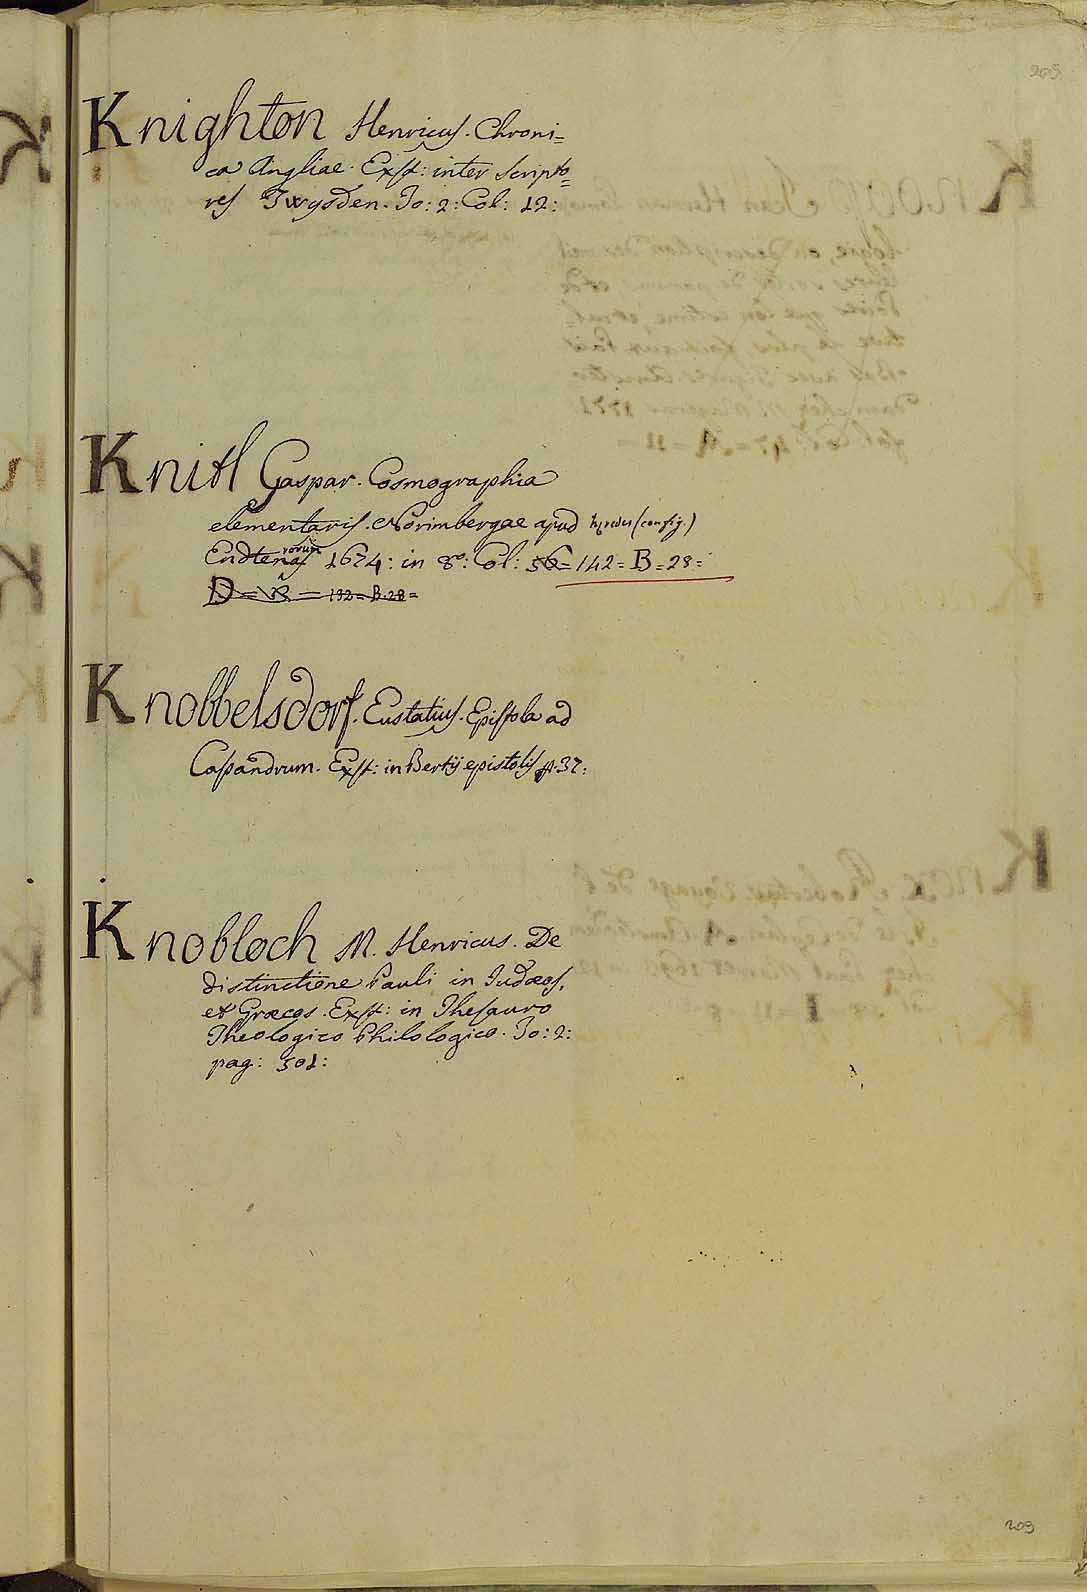 205
Knighton Henricus. Chroni=
ca Angliae. Exst: inter Scripto=
res Twysden. To: 2: Col: 12:
Knitl Gaspar. Cosmographia
elementaris. Norimbergae apud hęredes (config.)
Endterorum 1674: in 8º: Col: 56 = 142 = B = 28 =
D = R = 132 = B. 28 =
Knobbelsdorf. Eustatius. Epistola ad
Casandrum. Exst: in Bertij epistolis p. 37:
Knobloch M. Henricus. De
distinctione Pauli in Judæos,
et Græcos. Exst: in Thesauro
Theologico Philologico. To: 2:
pag: 501:
209